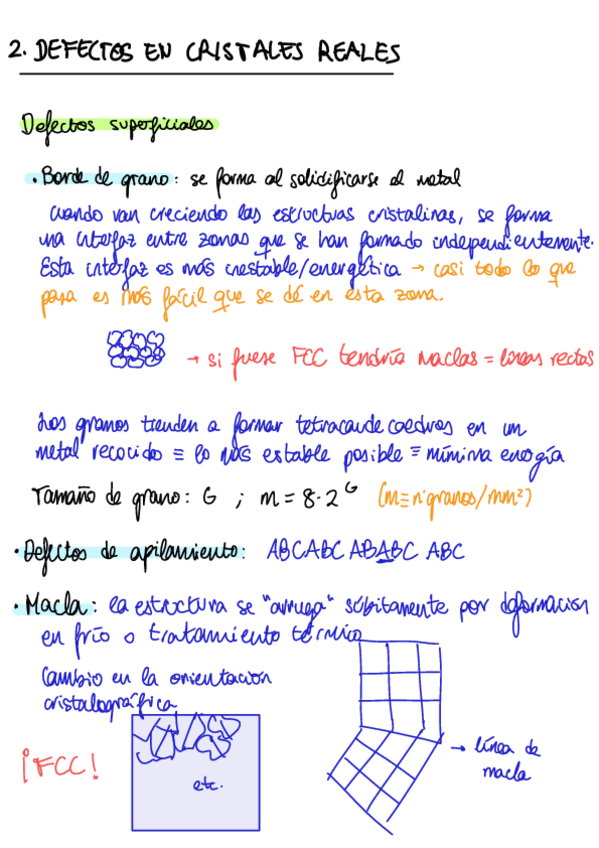 2. DEFECTOS EN CRISTALES REALES
Defectos superficiales
• Borde de grano: se forma al solidificarse el metal
Cuando van creciendo las estructuras cristalinas, se forma
una interfaz entre zonas que se han formado independientemente.
Esta interfaz es más inestable/energética → casi todo lo que
pasa es más fácil que se dé en esta zona.
→ si fuese FCC tendría maclas = líneas rectas
Los granos tienden a formar tetracaidecaedros en un
metal recocido ≡ lo más estable posible ≡ mínima energía
Tamaño de grano: G ; m = 8·2^G (m≡nº granos/mm²)
• Defectos de apilamiento: ABCABC ABABC ABC
• Macla: la estructura se "arruga" súbitamente por deformación
en frío o tratamiento térmico
Cambio en la orientación
cristalográfica
¡FCC!
etc.
→ línea de
macla